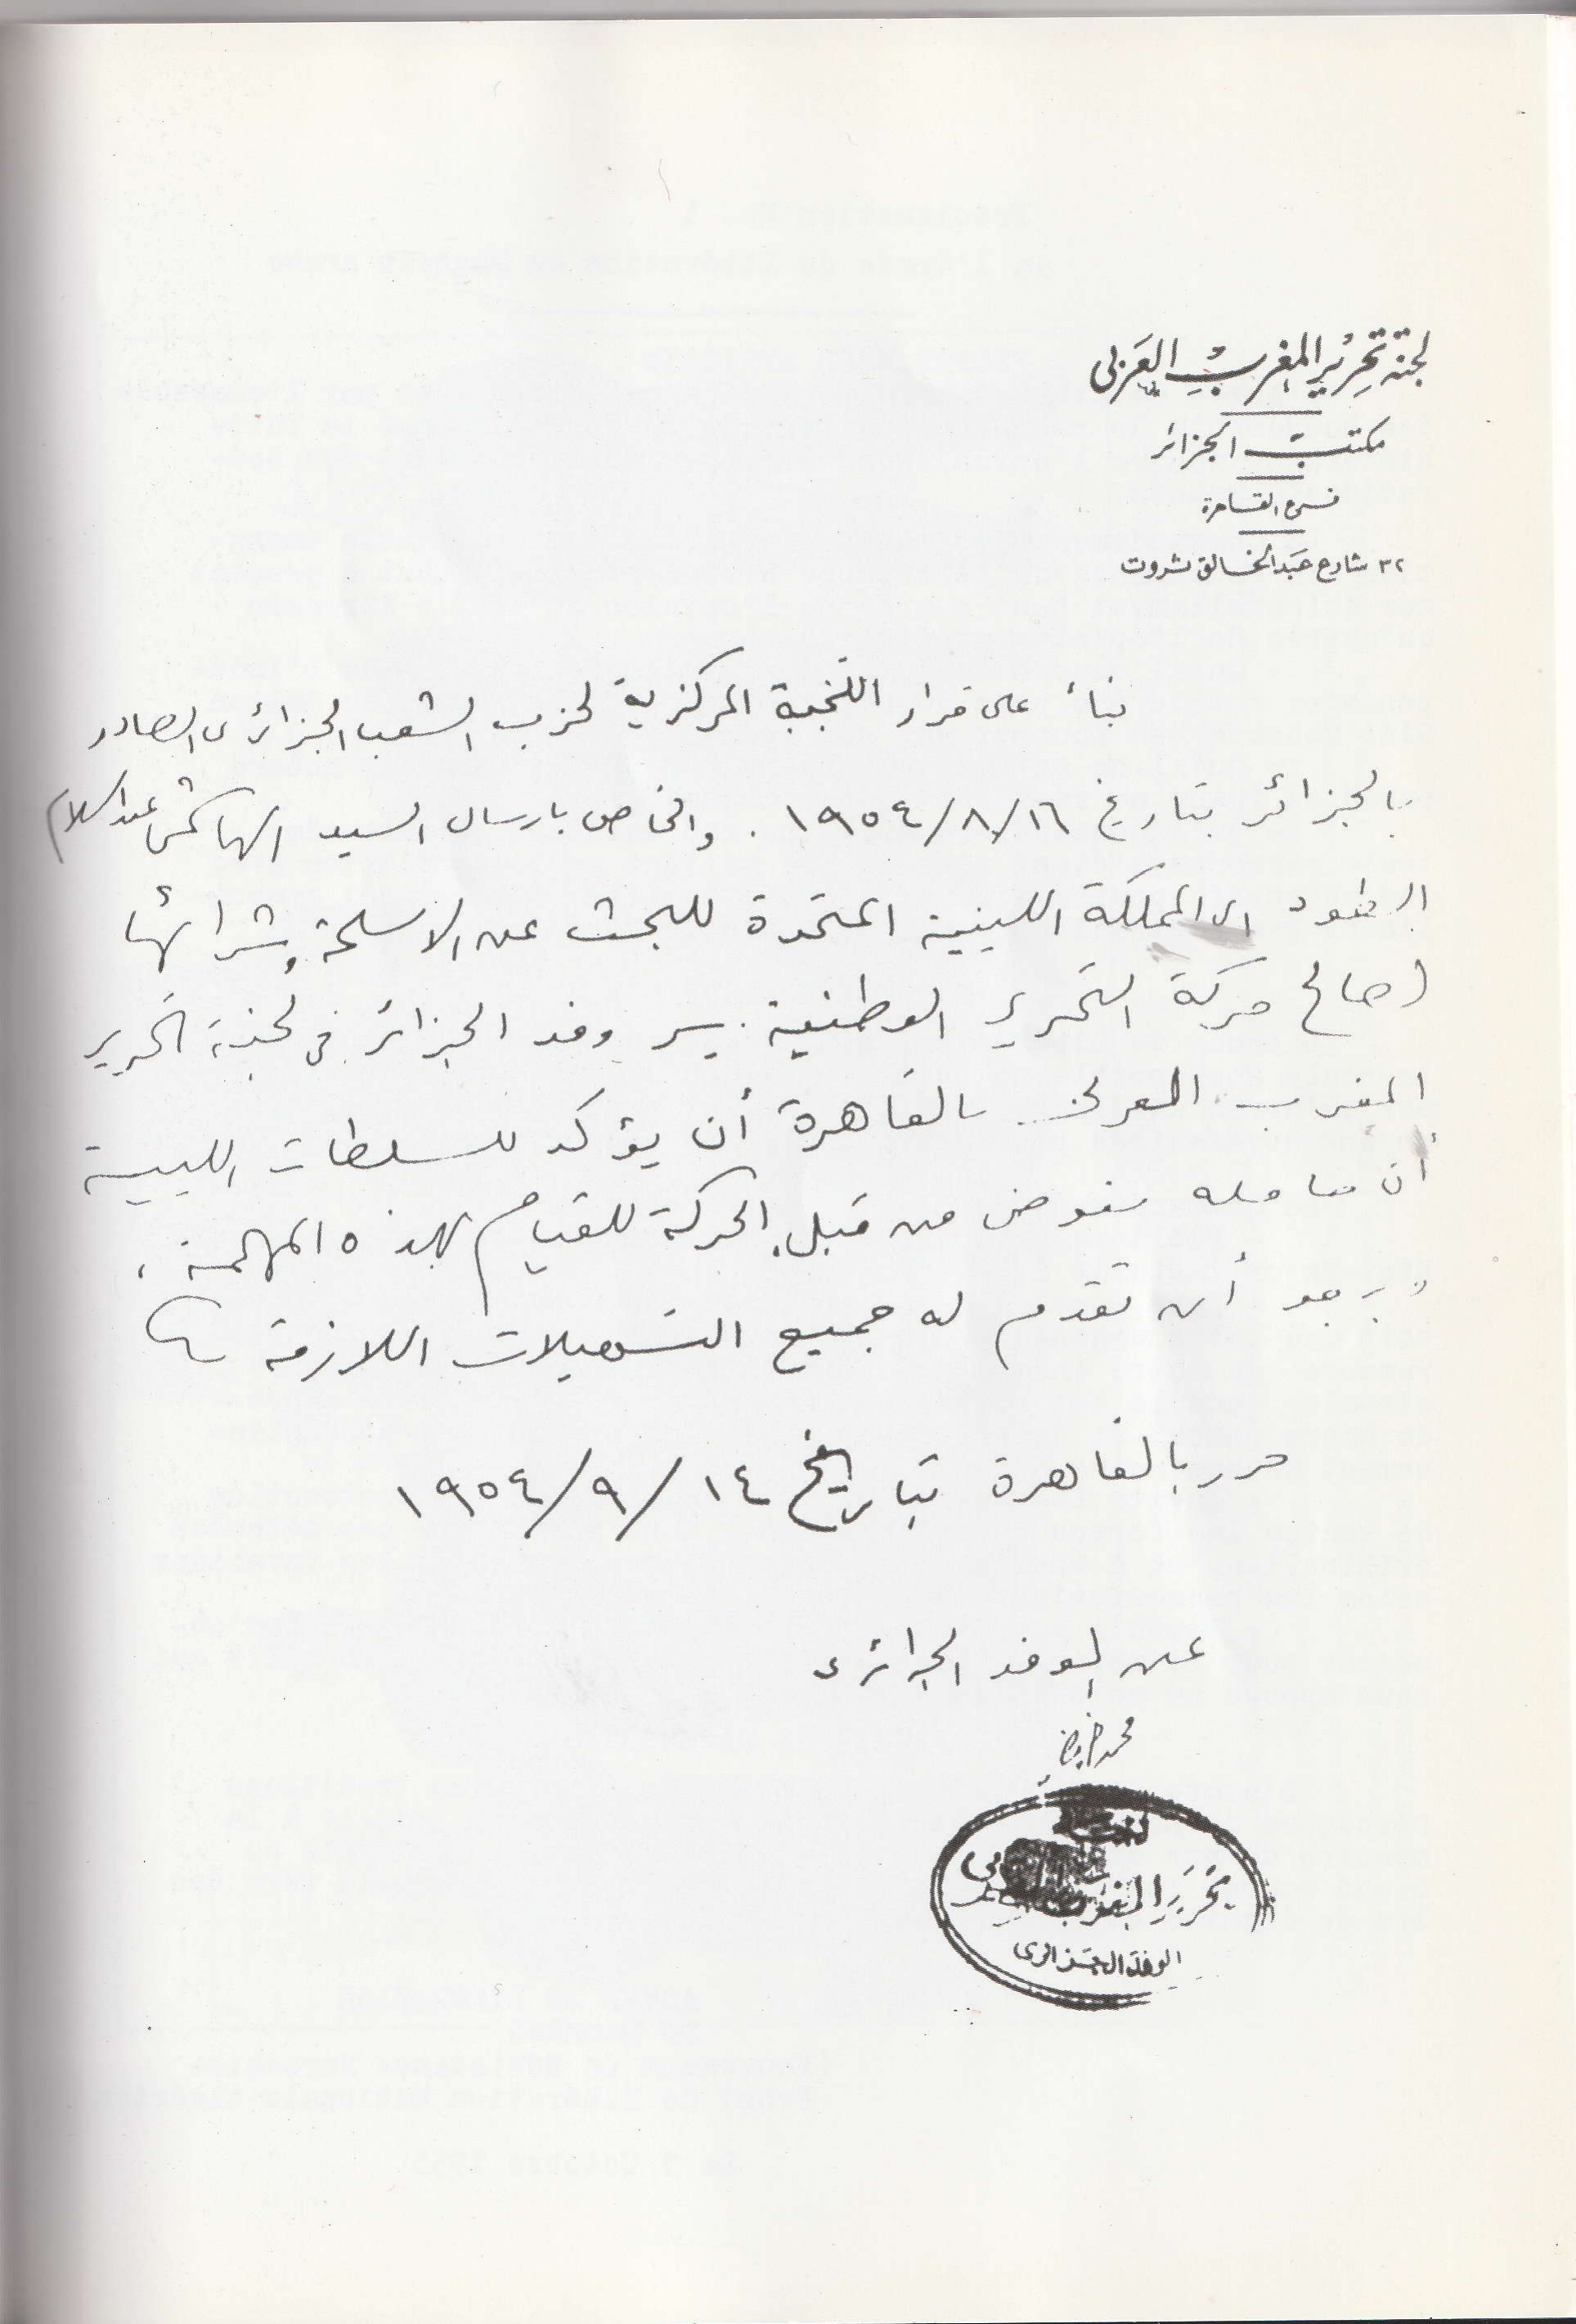 لجنة تحرير المغرب العربى
مكتب الجزائر
فرع القاهرة
٣٢ شارع عبد الخالق ثروت
بناءً على قرار اللجنة المركزية لحزب الشعب الجزائرى الصادر
بالجزائر بتاريخ ١٦/٨/١٩٥٤. والخاص بارسال السيد الهاشمى عبد السلام
الطود الى المملكة الليبية المتحدة للبحث عن الاسلحة وشرائها
لصالح حركة التحرير الوطنية. يسر وفد الجزائر فى لجنة تحرير
المغرب العربى بالقاهرة أن يؤكد للسلطات الليبية
أن حامله مفوض من قبل الحركة للقيام بهذه المهمة،
ويرجو أن تقدم له جميع التسهيلات اللازمة
حرر بالقاهرة بتاريخ ١٤/٩/١٩٥٤
عن الوفد الجزائرى
محمد خيضر
لجنة
تحرير المغرب العربى
الوفد الجزائرى